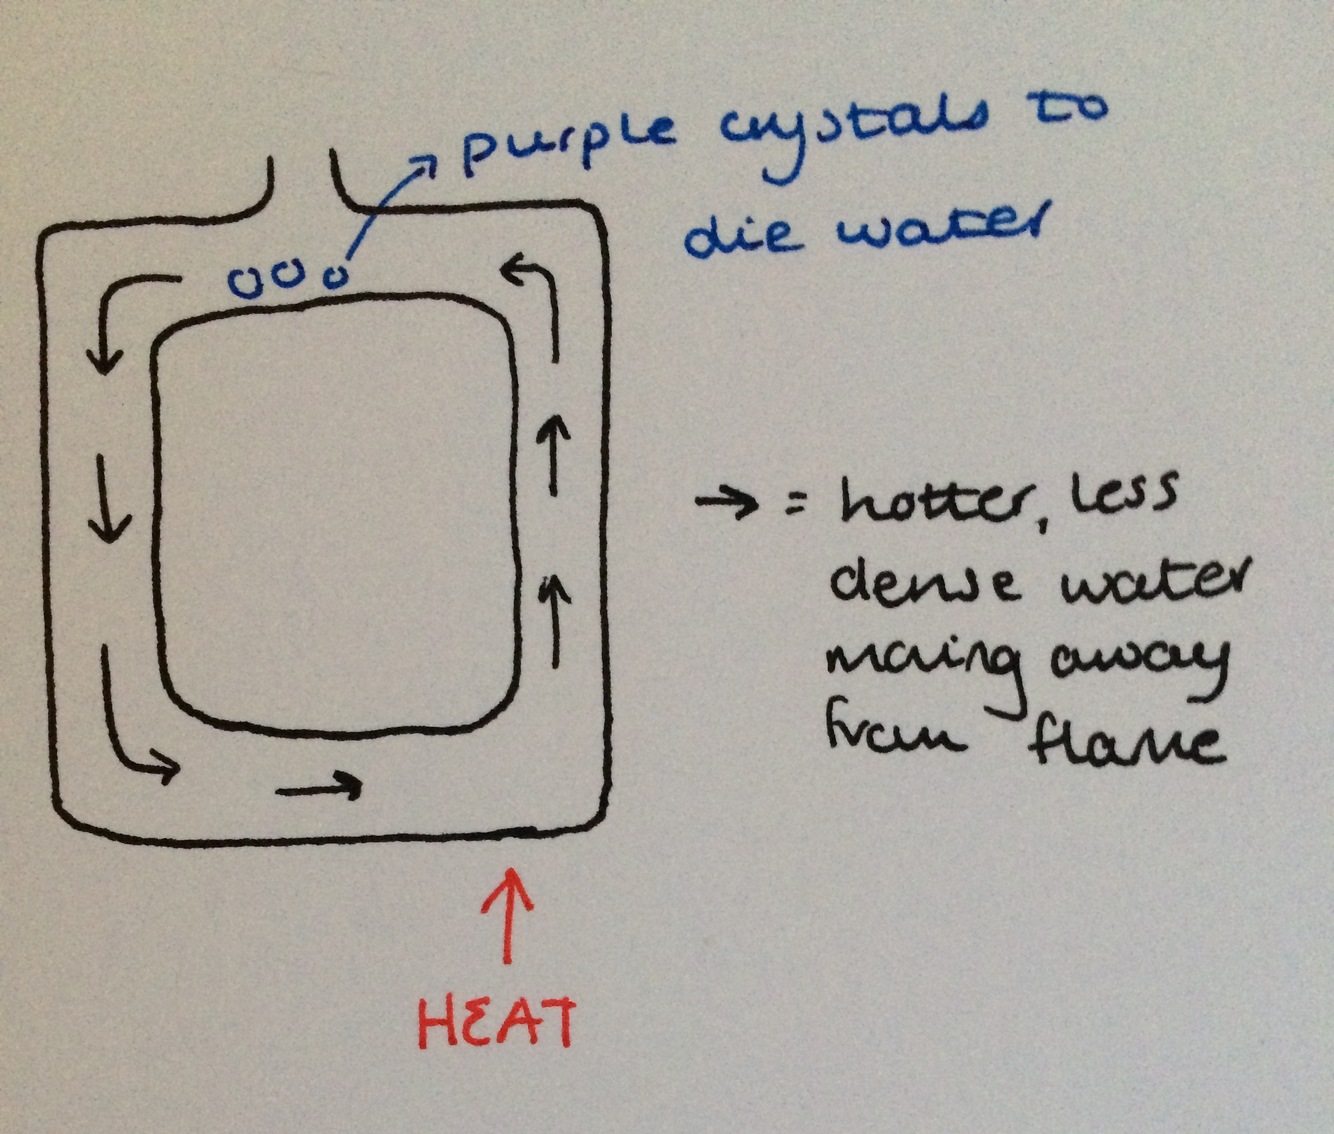 purple crystals to
die water
→ = hotter, less
dense water
moving away
from flame
HEAT